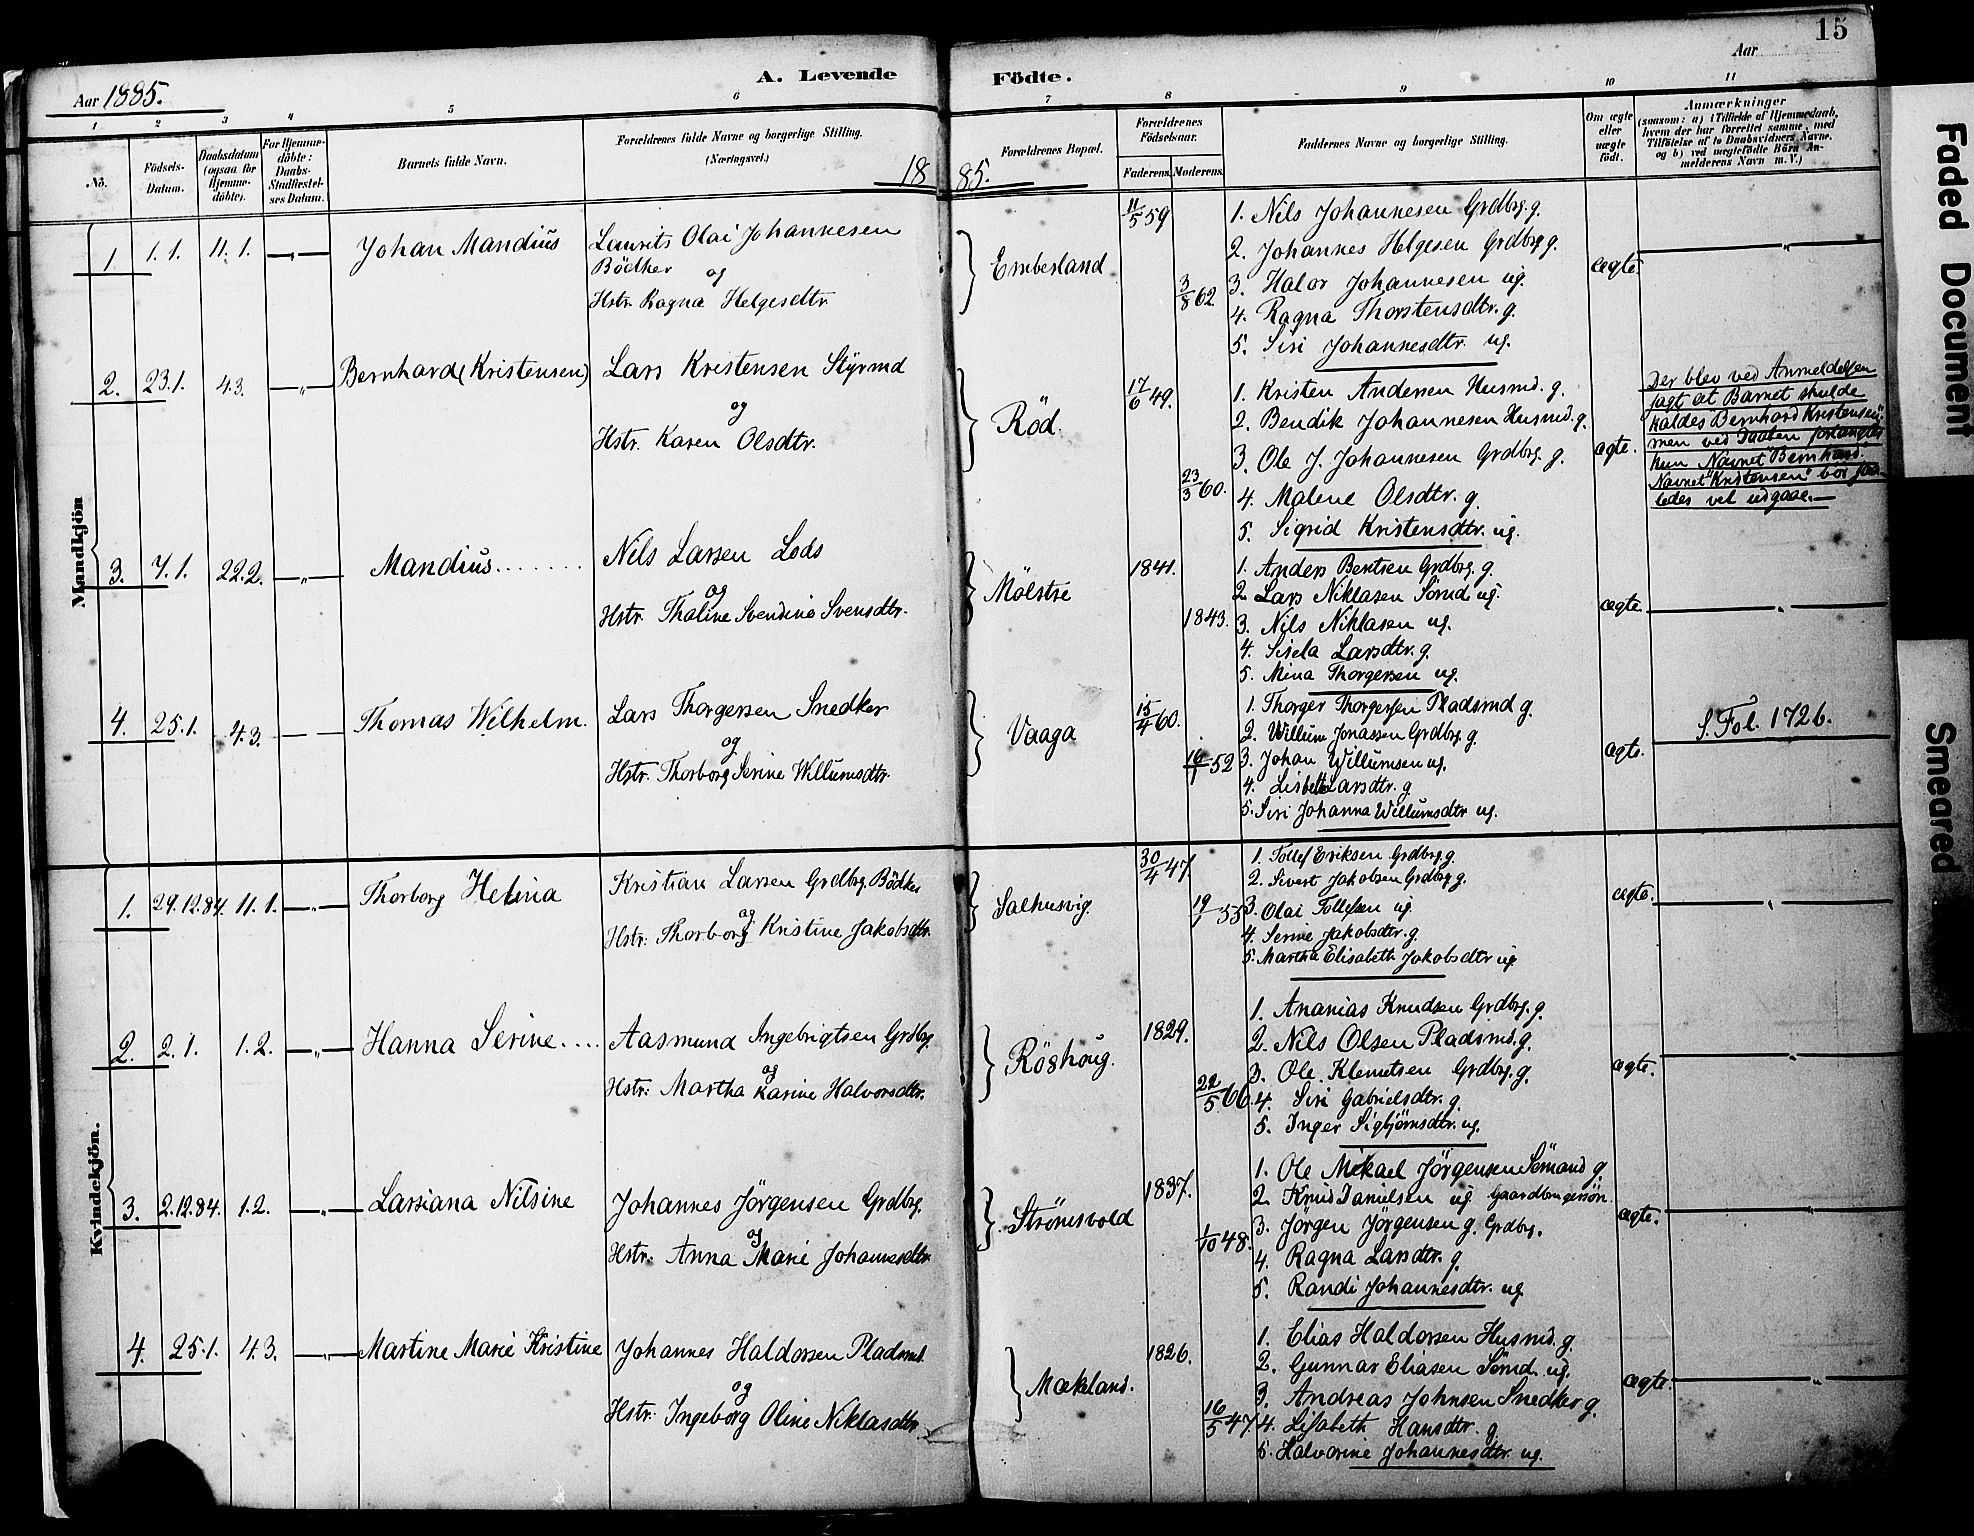 15
Aar 1885.
A. Levende Födte.
Aar
1 2 3 4 5 6 7 8 9 10 11
No.
Födsels-Datum.
Daabsdatum (ogsaa for Hjemme-döbte).
For Hjemme-döbte: Daabs-Stadfæstel-ses Datum.
Barnets fulde Navn.
Forældrenes fulde Navne og borgerlige Stilling. (Næringsvei.)
Forældrenes Bopæl.
Forældrenes Födselsaar.
Faderens. Moderens.
Faddernes Navne og borgerlige Stilling.
Om ægte eller uægte födt.
Anmærkninger (saasom: a) i Tilfælde af Hjemmedaab, hvem der har forrettet samme, med Tilföielse af to Daabsvidners Navne, og b) ved uægtefödte Börn An-melderens Navn m. V.)
1885.
Mandkjön
1 1.1. 11.1. —„— Johan Mandius
Laurits Olai Johannesen
Bödker og
Hstr. Ragna Helgesdtr.
Emberland
11/5 59
3/8 62
1. Nils Johannesen Grdbrg. g.
2. Johannes Helgesen Grdbrg g.
3. Halor Johannesen ug.
4. Ragna Thorstensdtr. g.
5. Siri Johannesdtr. ug.
ægte.
—„—
2. 23.1. 4.3. —„— Bernhard (Kristensen)
Lars Kristensen Styrmd
og
Hstr. Karen Olsdtr.
Röd.
17/6 49.
23/3 60.
1. Kristen Andersen Husmd. g.
2. Bendik Johannesen Husmd. g.
3. Ole J. Johannesen Grdbrg. g.
4. Malene Olsdtr. g.
5. Sigrid Kristensdtr. ug.
ægte.
Der blev ved Anmeldelsen
sagt at Barnet skulde
kaldes Bernhard Kristensen,
men ved Daaben forlangtes
kun Navnet Bernhard.
Navnet "Kristensen" bör saa-
ledes vel udgaae.
3. 7.1. 22.2. —„— Mandius.......
Nils Larsen Lods
og
Hstr. Thaline Svendine Svensdtr.
Mölstre
1841.
1843.
1. Anders Bentsen Grdbrg. g.
2. Lars Niklasen Sömd. ug.
3. Nils Niklasen ug.
4. Sisela Larsdtr. g.
5. Mina Thorgersen ug.
ægte.
—„—
4. 25.1. 4.3. — — Thomas Wilhelm.
Lars Thorgersen Snedker
og
Hstr. Thorborg Serine Willumsdtr.
Vaaga
15/4 60.
52
1. Thorger Thorgersen Pladsmd g.
2. Willum Jonassen Grdbrg. g.
3. Johan Willumsen ug.
4. Lisbeth Larsdtr. g
5. Siri Johanna Willumsdtr ug.
ægte.
S. Fol. 1726.
Kvindekjön.
1. 29.12.84. 11.1. —„— Thorborg Helina
Kristian Larsen Grdbrg. Bödker
og
Hstr: Thorborg Kristine Jakobsdtr.
Salhusvig.
30/4 47
55
1. Tollef Eriksen Grdbrg. g.
2. Sivert Jakobsen Grdbrg g.
3. Olai Tollefsen ug.
4. Serine Jakobsdtr. g.
5. Martha Elisabeth Jakobsdtr ug.
ægte.
—„—
2. 2.1. 1.2. —„— Hanna Serine....
Aasmund Ingebrigtsen Grdbrg.
og
Hstr: Martha Karine Halvorsdtr.
Röshoug.
1829.
22/5 66.
1. Ananias Knudsen Grdbrg. g.
2. Nils Olsen Pladsmd. g.
3. Ole Klemetsen Grdbrg. g.
4. Siri Gabrielsdtr. g.
5. Inger Sigbjörnsdtr. ug.
ægte.
—„—
3. 2.12.84. 1.2. —„— Larsiana Nilsine
Johannes Jörgensen Grdbrg.
og
Hstr: Anna Marie Johannesdtr.
Strömsvold
1837.
1/10 48.
1. Ole Mikael Jörgensen Sömand g
2. Knud Danielsen ug Gaardbrugersön
3. Jörgen Jörgensen g. Grdbrg.
4. Ragna Larsdtr. g.
5. Randi Johannesdtr. ug.
ægte.
—„—
4. 25.1. 4.3. —„— Martine Marie Kristine
Johannes Haldorsen Pladsmd.
og
Hstr: Ingeborg Oline Niklasdtr.
Mækland.
1826.
16/5 47.
1. Elias Haldorsen Husmd. g.
2. Gunnar Eliasen Sömd. ug.
3. Andreas Johnsen Snedker g.
4. Lisabeth Hansdtr. g.
5. Halvorine Johannesdtr. ug.
ægte.
—„—
Faded Document
Smeared